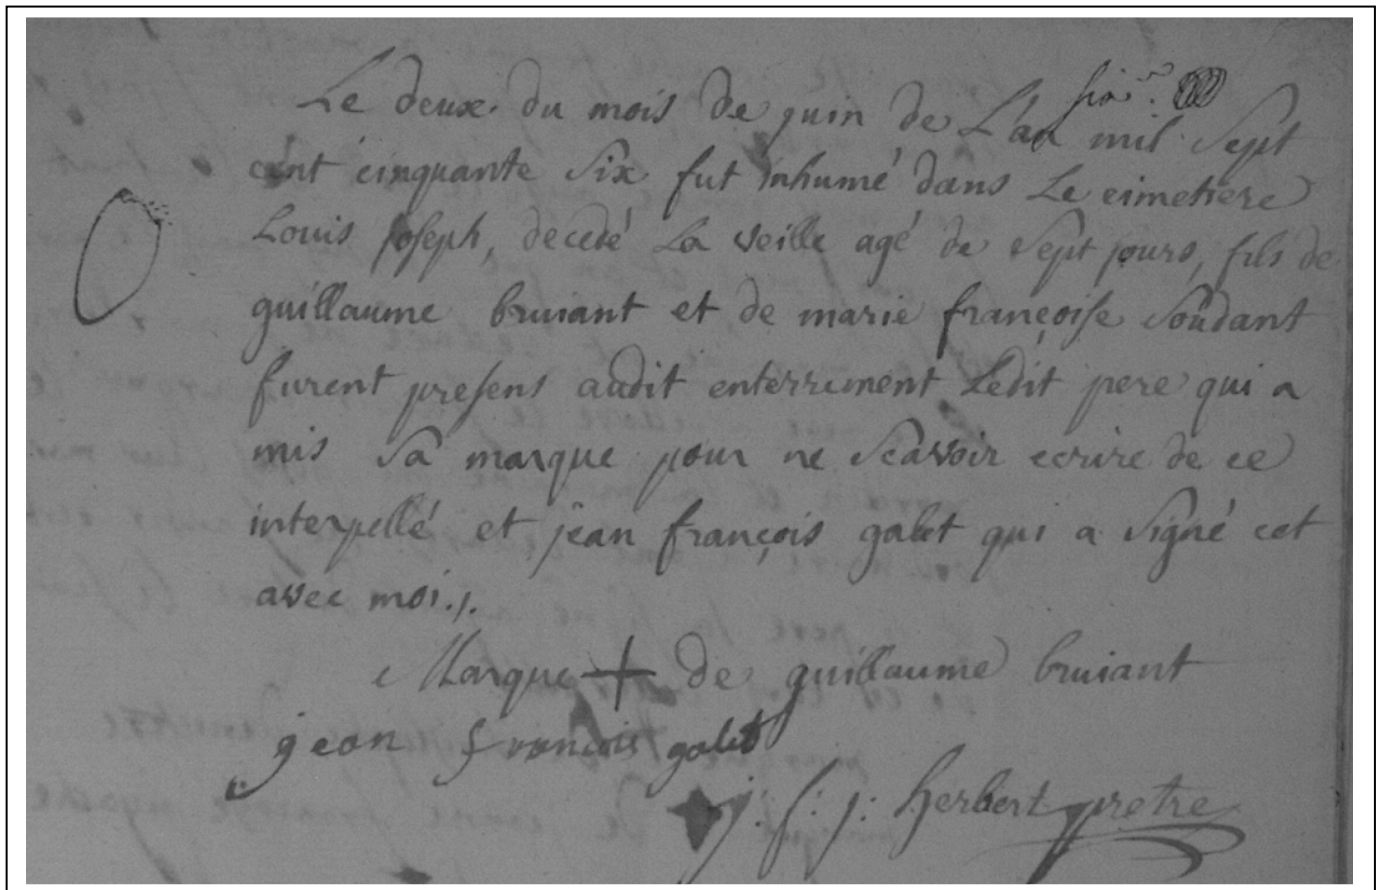 Le deux du mois de juin de L'an mil Sept
cent cinquante Six fut inhumé dans Le cimetiere
Louis Joseph, decedé La veille agé de Sept jours, fils de
guillaume bruiant et de marie françoise Soudant
furent presens audit enterrement Ledit pere qui a
mis Sa marque pour ne Scavoir ecrire de ce
interpellé et jean françois galet qui a Signé cet
avec moi./.
Marque + de guillaume bruiant
jean francois galet
j: f: j: herbert pretre